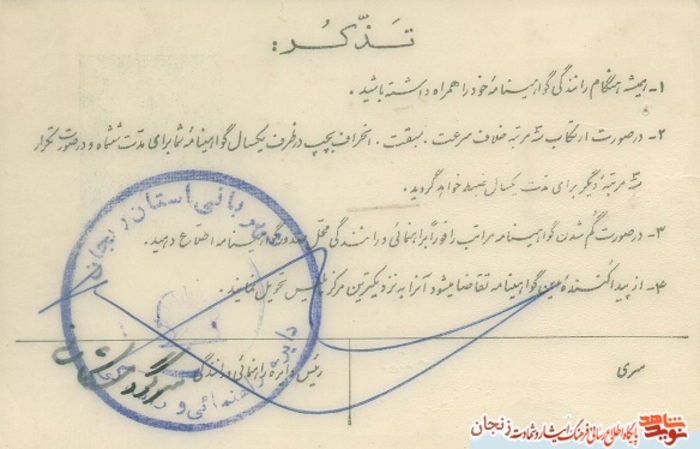 تَذَکُّر:
۱- همیشه هنگام رانندگی گواهینامهٔ خود را همراه داشته باشید.
۲- در صورت ارتکاب سه مرتبه خلاف سرعت. سبقت. انحراف بچپ در ظرف یکسال گواهینامه شما برای مدت ششماه و در صورت تکرار
سه مرتبهٔ دیگر برای مدت یکسال ضبط خواهد گردید.
۳- در صورت گم شدن گواهینامه مراتب را فوراً براهنمائی و رانندگی محل صدور گواهینامه اطلاع دهید.
۴- از پیدا کنندهٔ این گواهینامه تقاضا میشود آنرا به نزدیکترین مرکز پلیس تحویل نمایند.
شهربانی استان زنجان
دایره راهنمائی و
سری
رئیس دایره راهنمائی و رانندگی
سرگرد
نوید شاهد
پایگاه اطلاع رسانی فرهنگ ایثار و شهادت زنجان